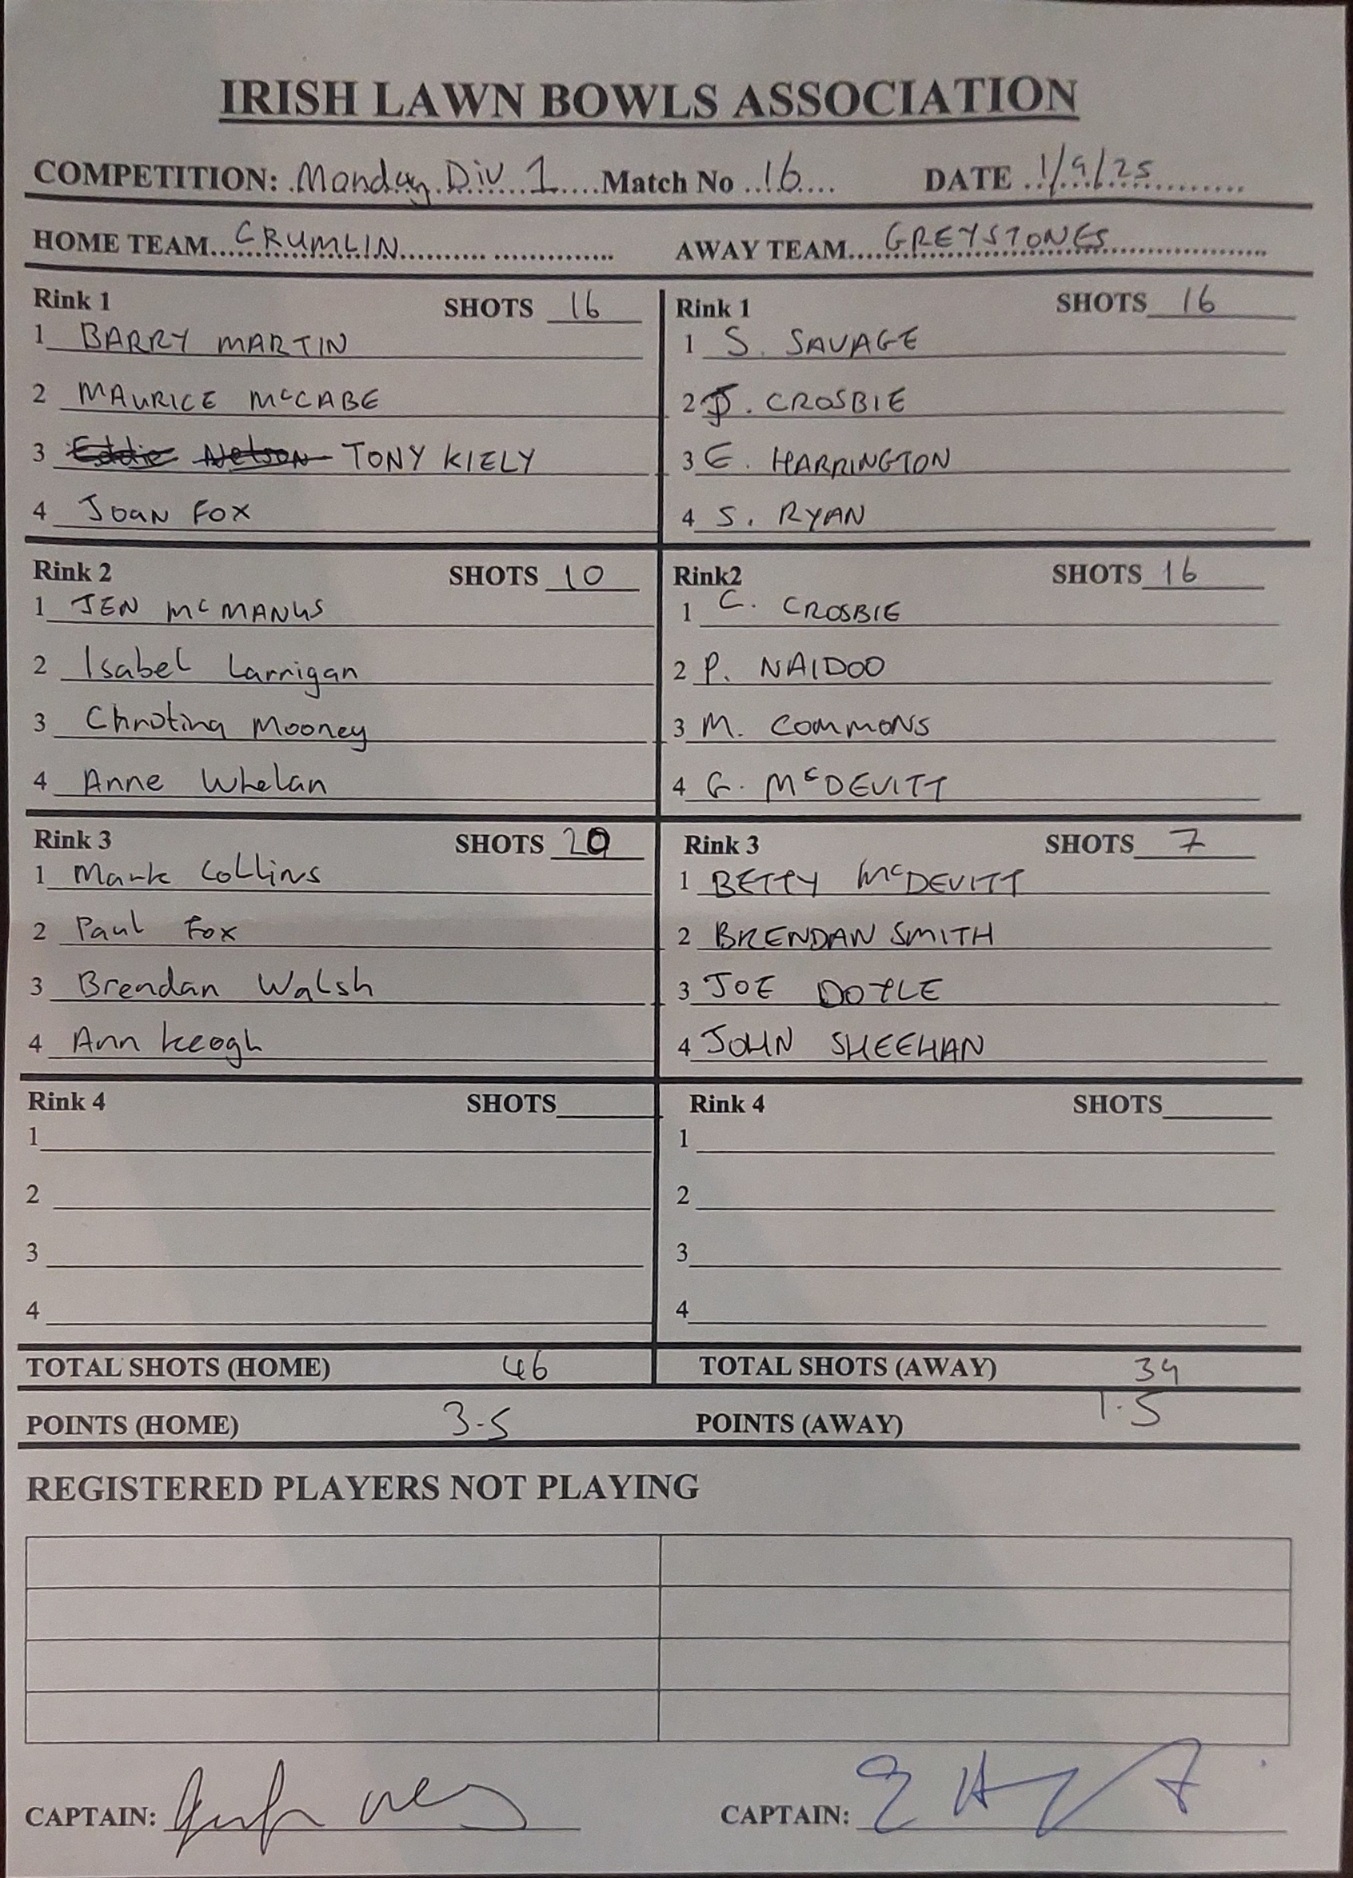 IRISH LAWN BOWLS ASSOCIATION
COMPETITION: Monday Div 1 Match No 16 DATE 1/9/25
HOME TEAM CRUMLIN AWAY TEAM GREYSTONES
Rink 1 SHOTS 16 Rink 1 SHOTS 16
1 BARRY MARTIN 1 S. SAVAGE
2 MAURICE McCABE 2 J. CROSBIE
3 Eddie Nelson TONY KIELY 3 E. HARRINGTON
4 Joan Fox 4 S. RYAN
Rink 2 SHOTS 10 Rink2 SHOTS 16
1 JEN McMANUS 1 C. CROSBIE
2 Isabel Larrigan 2 P. NAIDOO
3 Christina Mooney 3 M. COMMONS
4 Anne Whelan 4 G. McDEVITT
Rink 3 SHOTS 20 Rink 3 SHOTS 7
1 Mark Collins 1 BETTY McDEVITT
2 Paul Fox 2 BRENDAN SMITH
3 Brendan Walsh 3 JOE DOYLE
4 Ann Keogh 4 JOHN SHEEHAN
Rink 4 SHOTS Rink 4 SHOTS
1 1
2 2
3 3
4 4
TOTAL SHOTS (HOME) 46 TOTAL SHOTS (AWAY) 39
POINTS (HOME) 3.5 POINTS (AWAY) 1.5
REGISTERED PLAYERS NOT PLAYING
CAPTAIN: CAPTAIN: